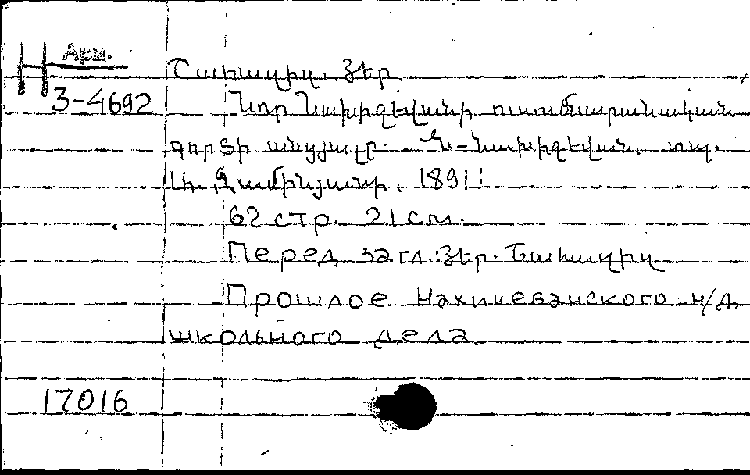 Н Арм.
3-4692
Շահազիզ. Յեր
Նոր Նախիջևանի ուսումնարանական
գործի անցյալը. Ն-Նախիջևան. տպ.
1891։
62 стр. 21 см.
Перед загл: Յեր. Շահազիզ
Прошлое Нахичеванского н/Д.
школьного дела
17016